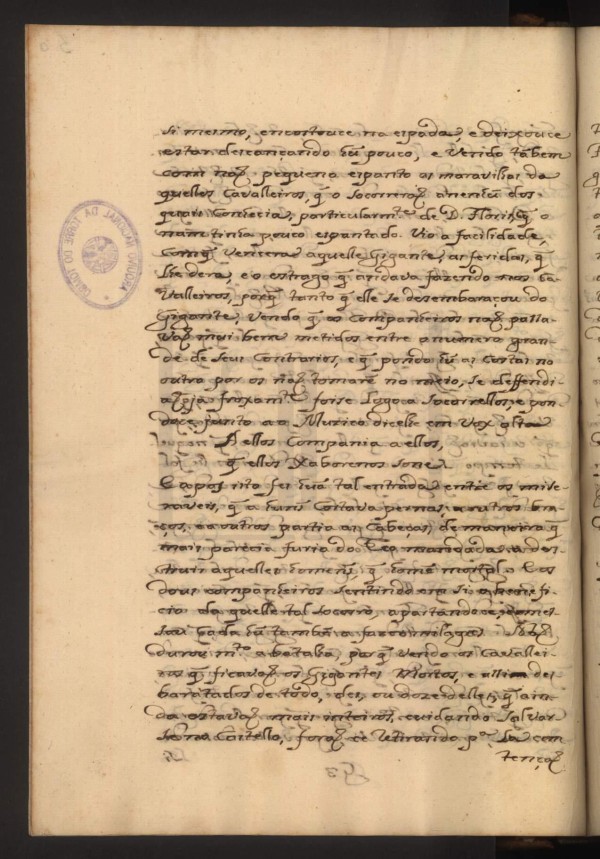 si mesmo, encostouce na espada, e deixouce
estar descançando hũ pouco, e vendo tãbem
com naõ pequeno espanto as maravilhas da
quelles Cavalleiros, q̃ o socorreraõ a nenhũ dos
quais conhecia, particularmte de D. q̃ o
nam tinha pouco espantado. Vio a facilidade,
com q̃ vencera aquelle Gigante, as feridas, q̃
lhe dera, e o estrago q̃ andava fazendo nos ca
valleiros, porq̃ tanto q̃ elle se desembaraçou do
Gigante, vendo q̃ os companheiros naõ
vaõ mui bem metidos entre o numero gran-
de de seus contrarios, e q̃ pondo hũ as costas no
outro por os naõ tomarẽ no meio, se deffendi-
aõ ja froxamte foise logo a socorrellos, e pon
doce junto ao Murico dicelhe em voz alta
A ellos Compania a ellos,
q̃ ellos
E apos isto fes huã tal entrada entre os mise-
raveis, q̃ a huns cortava pernas, a outros bra-
ços, e a outros partia as cabeças, de maneira q̃
mais parecia furia do Ceo mandada a des-
truir aquelles homens, q̃ homẽ mortal. Os
dous companheiros sentindo em si o benefi-
cio da quelle tal socorro, apartandoce,
cada hũ tambẽ a fazer milagres. Naõ
durou mto a batalha, porq̃ vendo os Cavallei-
ros q̃ ficavaõ os Gigantes mortos, e assim des
baratados de todo, des, ou doze delles, q̃ ain-
da estavaõ mais inteiros, cuidando salvar
se no Castello, foraõ ce retirando pa la com
tençaõ
ARQUIVO NACIONAL DA TORRE DO TOMBO